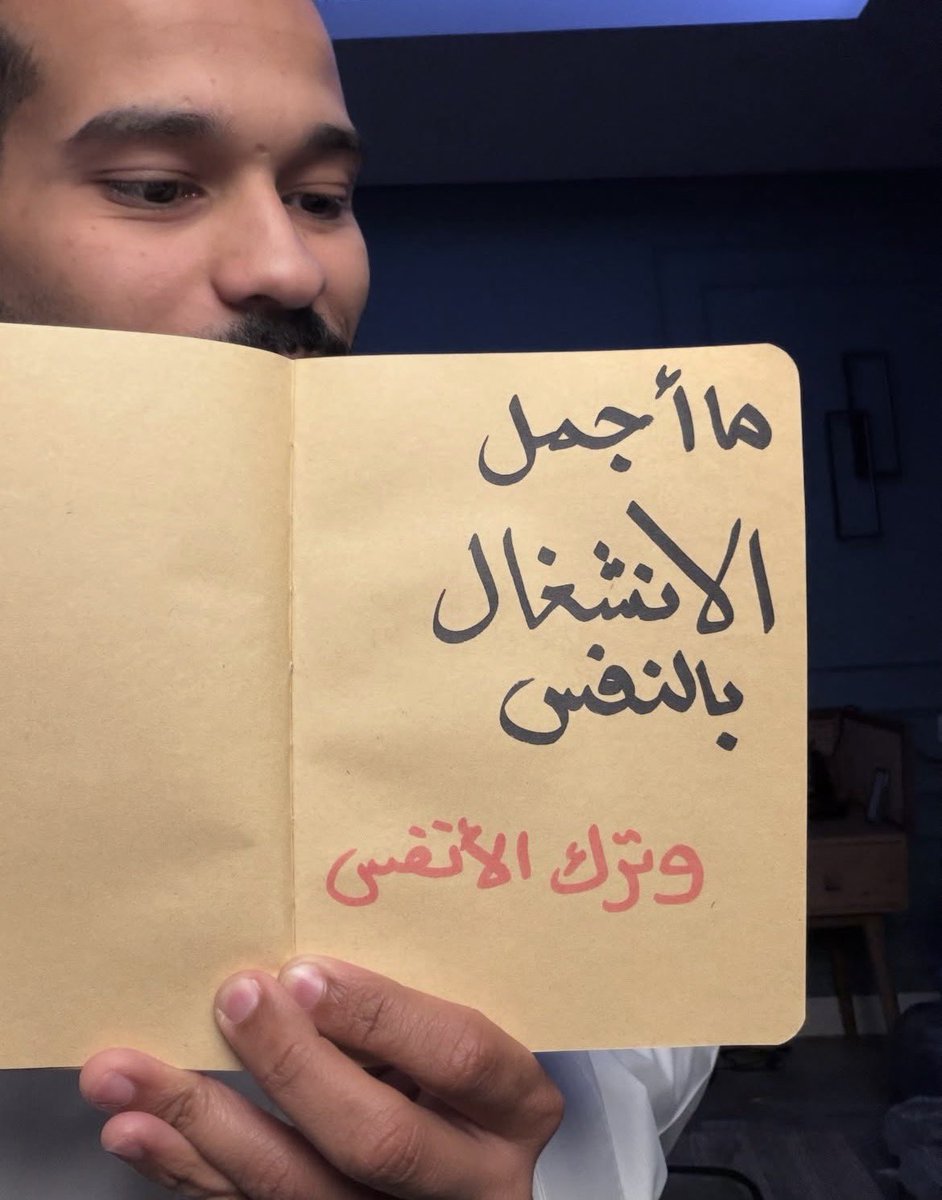 ما أجمل
الانشغال
بالنفس
وترك الأنفس